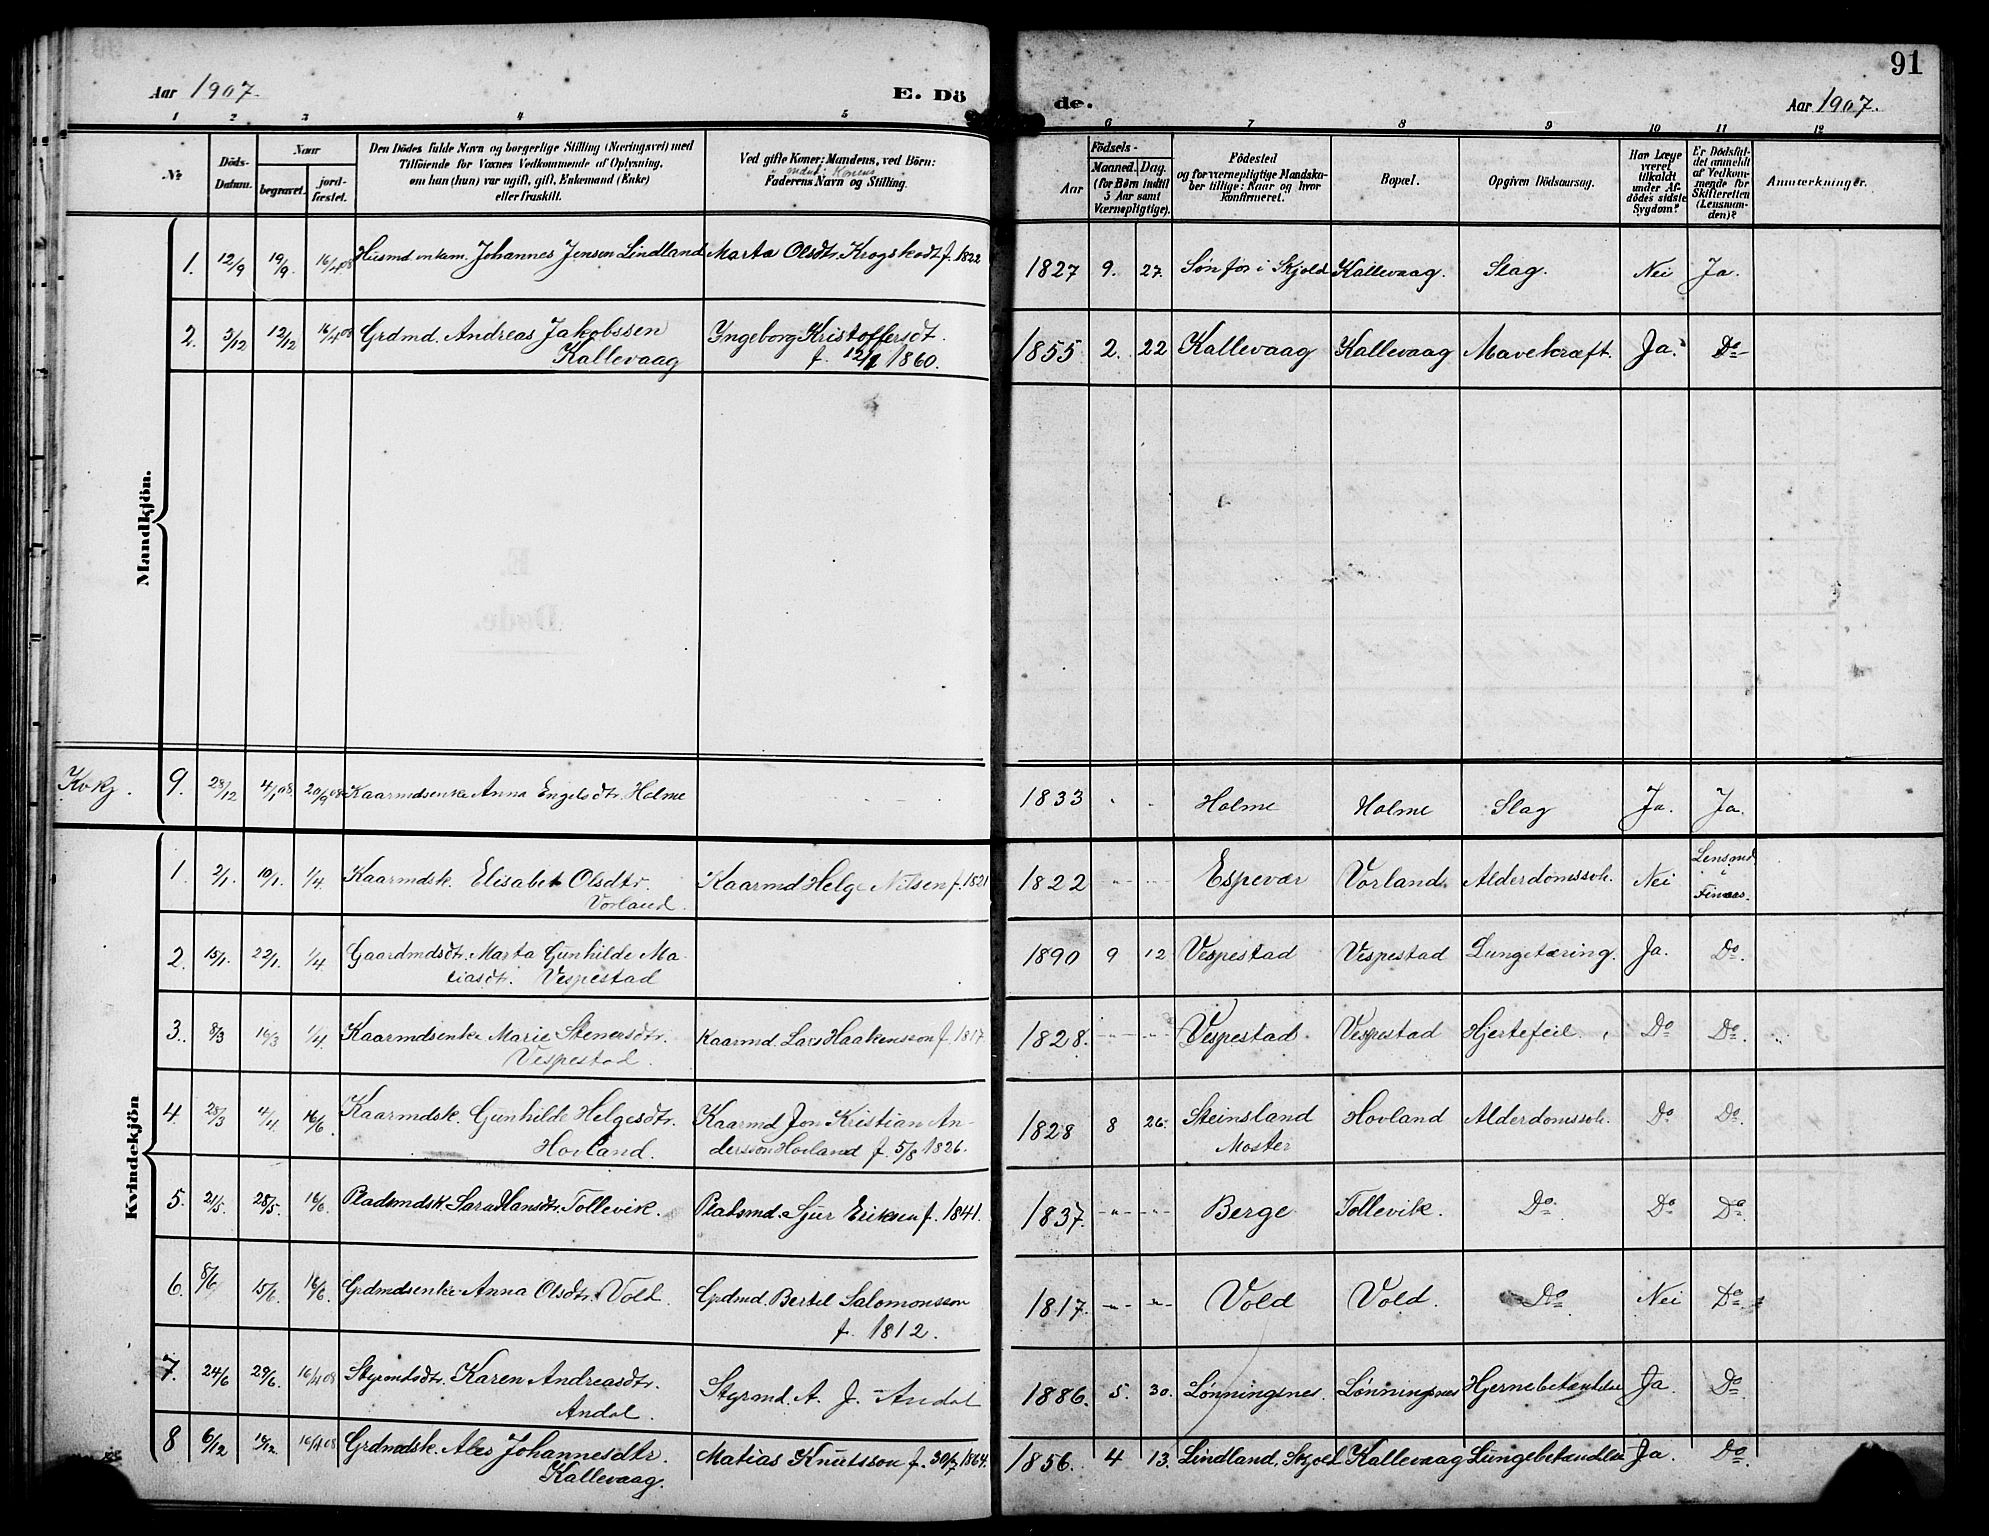 91
Aar 1907.
E. Dö
de.
Aar 1907.
1 2 3 4 5 6 7 8 9 10 11 12
No.
Döds-Datum.
Naar
begravet.
jord-fæstet.
Den Dödes fulde Navn og borgerlige Stilling (Næringsvei) med
Tilföiende for Voxnes Vedkommende af Oplysning,
om han (hun) var ugift, gift, Enkemand (Enke)
eller fraskilt.
Ved gifte Koner: Mandens, ved Börn:
Faderens Navn og Stilling.
Födsels-
Aar
Maaned. Dag.
(for Børn indtil
5 Aar samt
Værnepligtige).
Födested
og for værnepligtige Mandska-
ber tillige: Naar og hvor
konfirmeret.
Bopæl.
Opgiven Dödsaarsag.
Har Læge
været
tilkaldt
under Af-
dödes sidste
Sygdom?
Er Dödsfal-
det anmeldt
af Vedkom-
mende for
Skifteretten
(Lensman-
den)?
Anmærkninger.
Mandkjön.
1. 12/9 19/9. 16/4 08 Husmd enkem. Johannes Jensen Lindland Marta Olsdtr. Krogskodt f. 1822 1827 9. 27. Sønfor i Skjold Kallevaag. Slag. Nei Ja.
2. 3/12 12/12 16/4 08 Grdmd. Andreas Jakobssen Yngeborg Kristoffersdt. 1855 2. 22 Kallevaag Kallevaag Mavekræft. Ja. Do
Kallevaag f. 12/1 1860.
Kvkj. 9. 28/12 4/1 08. 20/9 08 Kaarmdsenke Anna Engelsdtr. Holme 1833 Holme Holme Slag Ja. Ja.
Kvindekjön
1. 2/1. 10/1. 1/4. Kaarmdsk. Elisabet Olsdtr. Kaarmd Helge Nilsen f. 1821 1822 -"- -"- Espevær Vorland. Alderdomssvk. Nei Lensmd. i Finaas.
Vorland.
2. 15/1. 22/1. 1/4. Gaardmdsdtr. Marta Gunhilde Ma- 1890 9 12 Vespestad Vespestad Lungetæring. Ja. Do.
tiasdtr. Vespestad
3. 8/3 16/3 1/4. Kaarmdsenke Marie Stenersdtr. Kaarmd. Lars Haakensson f. 1817. 1828. -"- -"- Vespestad. Vespestad Hjertefeil. Do Do.
Vespestad.
4. 28/3 4/4. 16/6. Kaarmdsk. Gunhilde Helgesdtr. Kaarmd Jon Kristian An- 1828 8 26. Steinsland Hovland Alderdomssvk. Do Do.
Hovland. dersson Hovland f. 5/8 1826. Moster
5. 21/5. 28/5. 16/6. Pladsmdsk. Sara Hansdtr. Tollevik. Pladsmd. Sjur Eriksen f. 1841. 1837. -"- -"- Berge Tollevik. Do. Do Do.
6. 8/6 15/6. 16/6. Grdmdsenke Anna Olsdtr. Vold. Grdmd. Bertel Salomonsson 1817. -"- -"- Vold Vold. Do. Nei Do.
f. 1812.
7. 24/6 29/6. 16/4 08 Styrmdsdtr. Karen Andreasdtr. Styrmd. A. J. Andal 1886. 5. 30. Lønningsnes. Lønningsnes Hjernebetændelse Ja. Do
Andal.
8 6/12 16/12. 16/4 08 Grdmdsk. Ales Johannesdtr. Matias Knutsson f. 30/7 1864. 1856. 4 13. Lindland, Skjold Kallevaag Lungebetændelse Ja. Do.
Kallevaag.